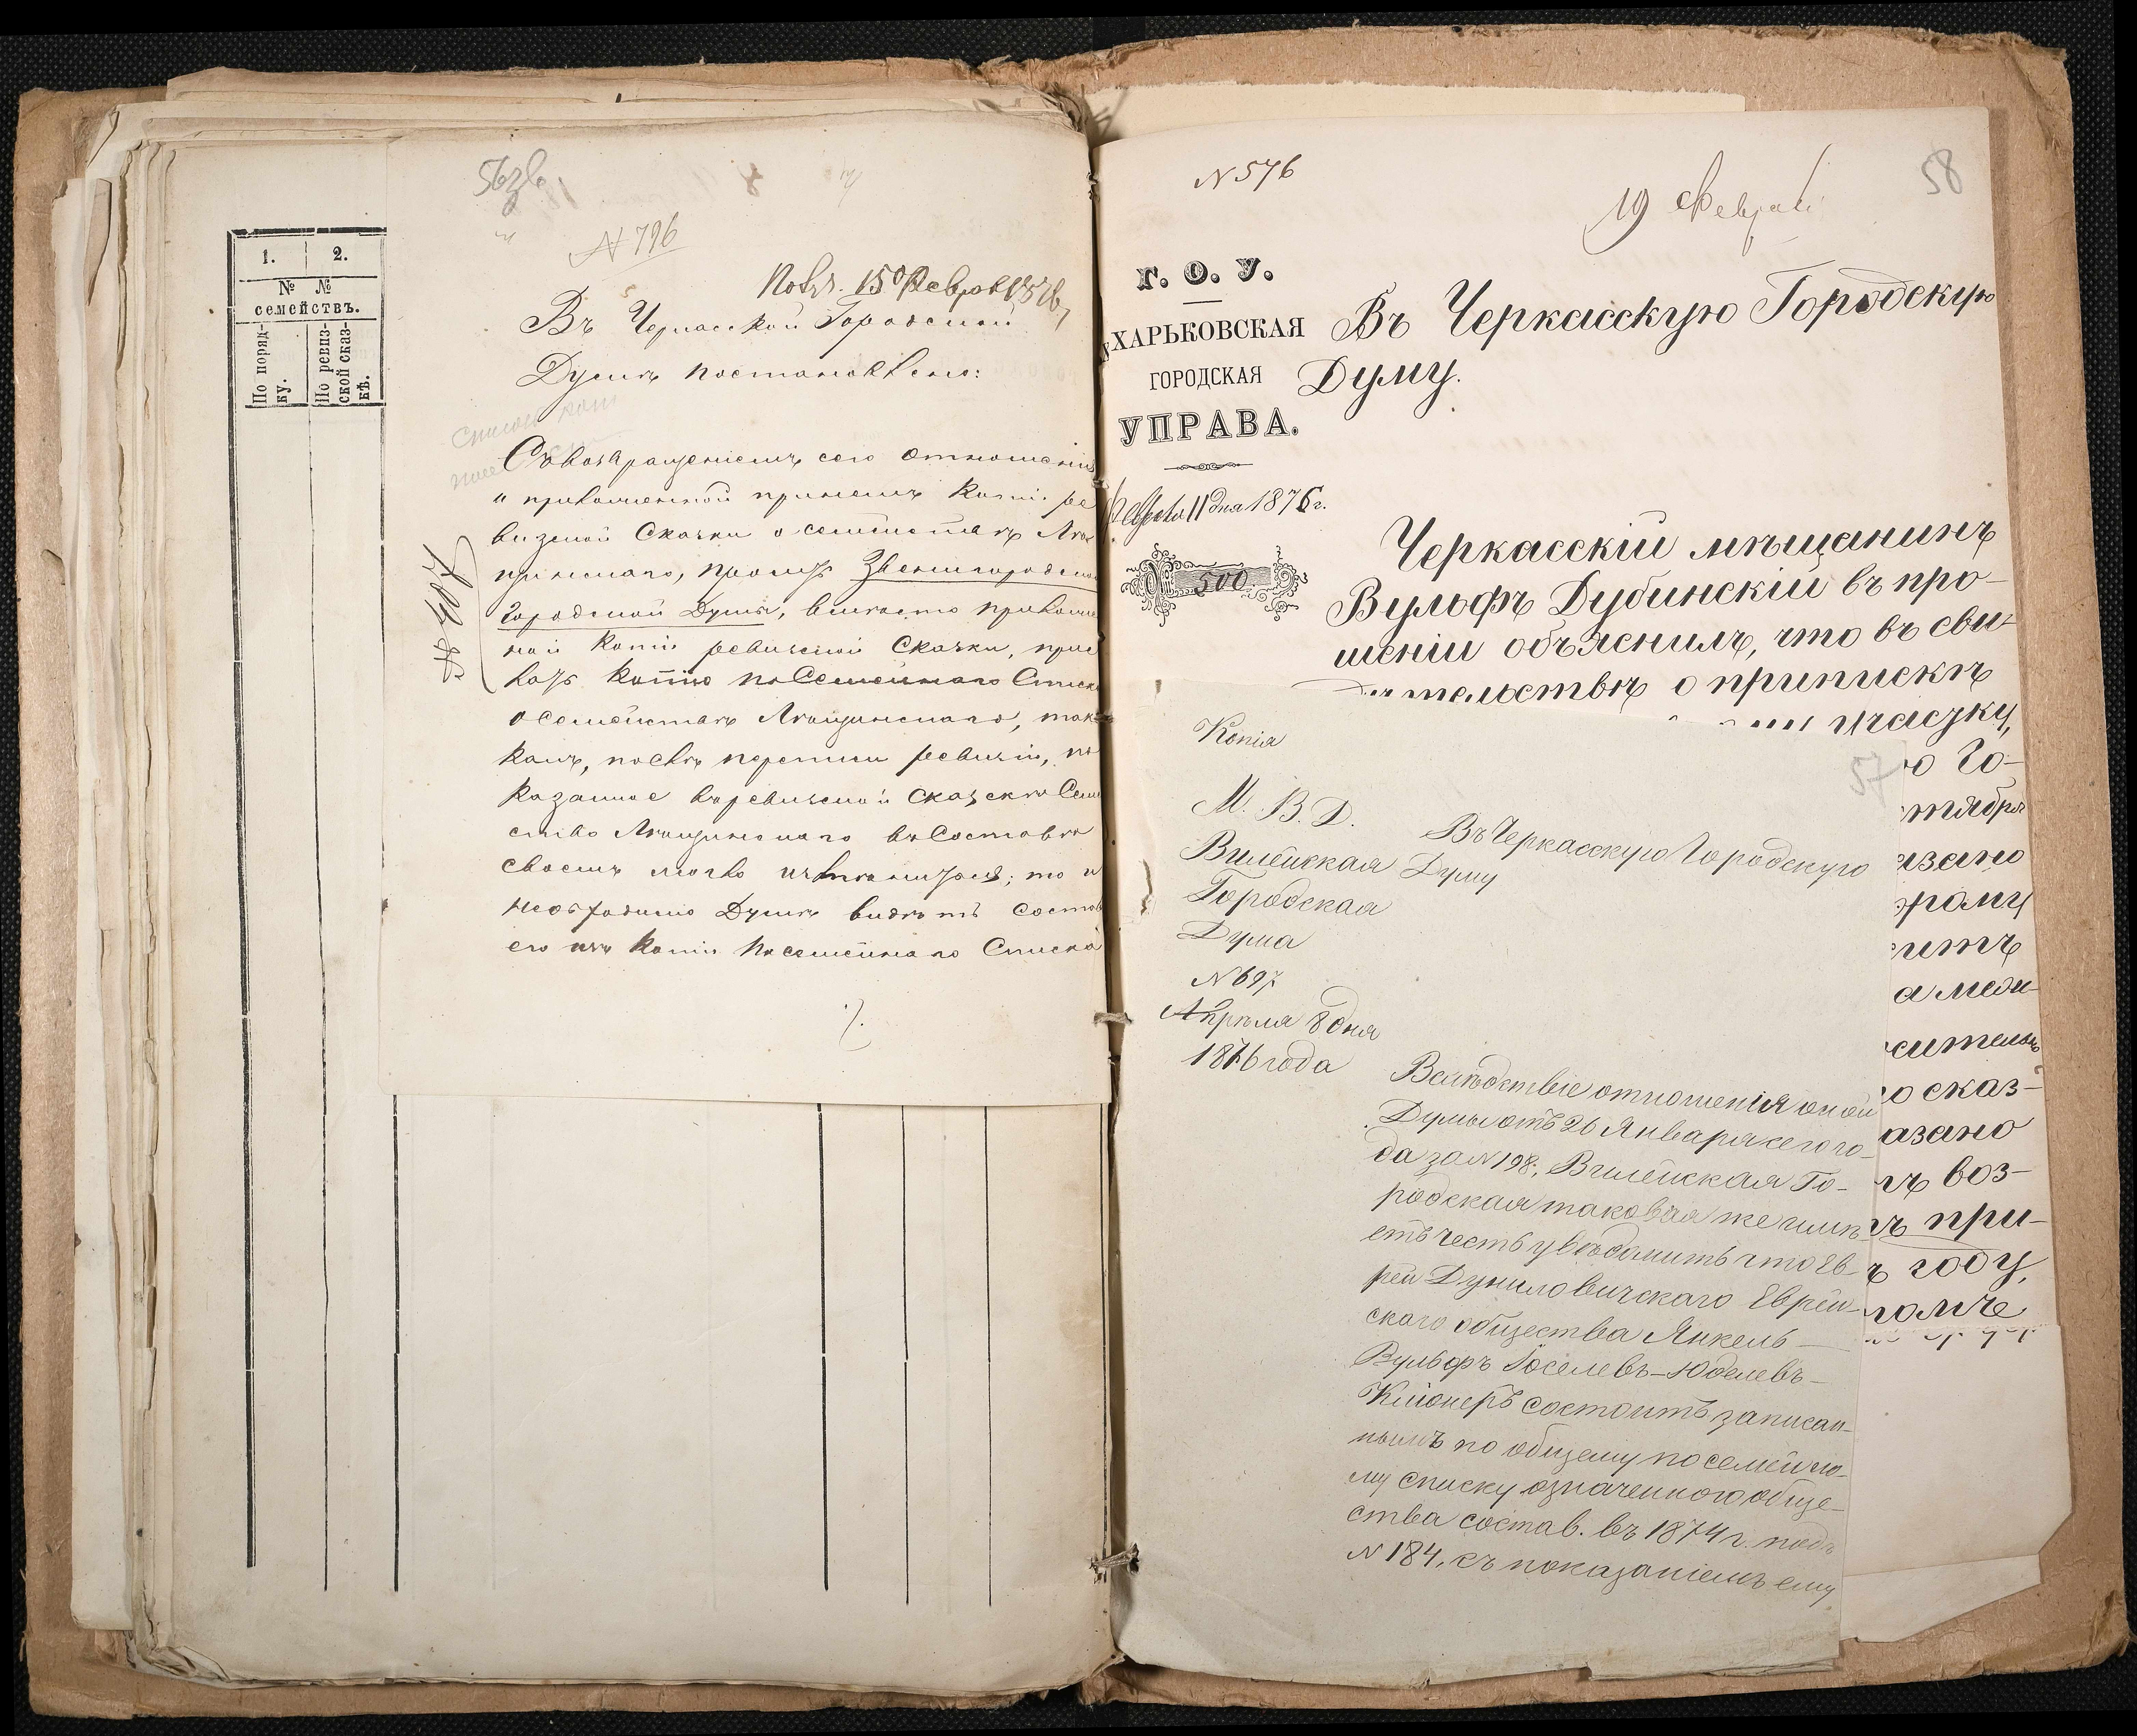 1. 2.
№ №
семействъ.
По поряд-
ку.
По ревиз-
ской сказ-
кѣ.
56 зв.
N 796
Въ Черкасской Городской
Думѣ постановлено:
Съ возвращеніемъ сего отношенія
и приложенной при немъ копіи ре
визской сказки о семействѣ
просить Звенигородскую
Городской Думы, вмѣсто приложен
ной копіи ревизской сказки, прис
лать копію посемейнаго списка
о семействѣ так
какъ, послѣ переписи ревизіи, по
казанное въ ревизской сказкѣ Семей
ство въ составѣ
своемъ могло измѣниться; то и
необходимо Думѣ видѣть состав
его изъ копіи посемейнаго списка
N 576
19 Февраля
58
Г. О. У.
ХАРЬКОВСКАЯ
ГОРОДСКАЯ
УПРАВА.
Февраля 11 дня 1876 г.
№ 500.
Въ Черкасскую Городскую
Думу.
Черкасскій мѣщанинъ
Вульфъ Дубинскій въ про-
шеніи объяснилъ, что въ сви-
дѣтельствѣ о припискѣ
участку,
о Го-
тября
азано
ому
итъ
а меди-
сительно
о сказ-
азано
ъ воз-
ъ при-
ъ году,
57
Копія
М. В. Д.
Вилейская
Городская
Дума
N 697
Апрѣля 8 дня
1876 года
Въ Черкасскую Городскую
Думу
Вслѣдствіе отношенія оной
Думы отъ 26 Января сего го-
да за N 198, Вилейская Го-
родская таковая же имѣ-
етъ честь увѣдомить что Ев-
рей Дуниловичскаго Еврей-
скаго общества Янкель-
Вульфъ Іоселевъ-Юделевъ-
Кліонеръ состоитъ записан-
нымъ по общему посемейно-
му списку означеннаго обще-
ства состав. въ 1874 г. подъ
N 184, съ показаніемъ ему